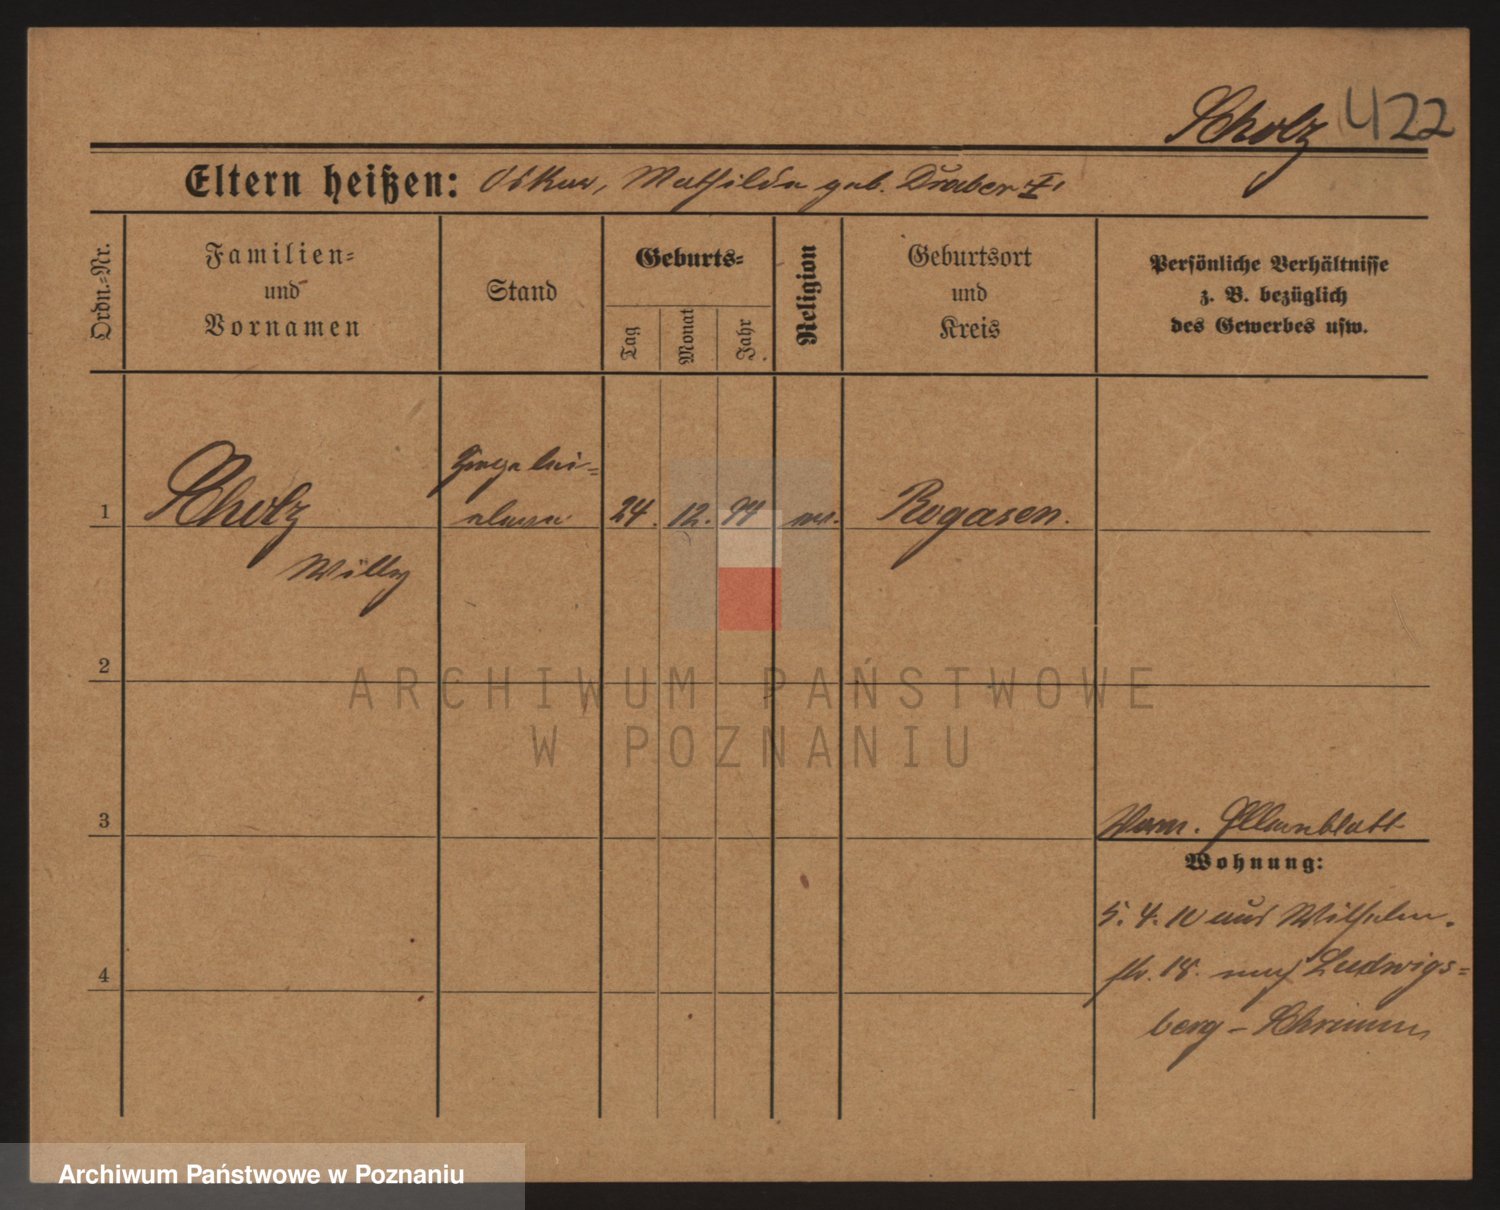 Scholz 422
Eltern heißen: Oskar, Mathilde geb. Draber I.
Ordn.-Nr.
Familien-
und
Vornamen
Stand
Geburts-
Tag
Monat
Jahr
Religion
Geburtsort
und
Kreis
Persönliche Verhältnisse
z. B. bezüglich
des Gewerbes usw.
1 Scholz 24. 12. 94 ev. Rogasen.
Willy
2
ARCHIWUM PAŃSTWOWE
W POZNANIU
3
Wohnung:
5. 4. 10 aus Wilhelm-
str. 18. nach Ludwigs=
berg - Schrimm
4
Archiwum Państwowe w Poznaniu